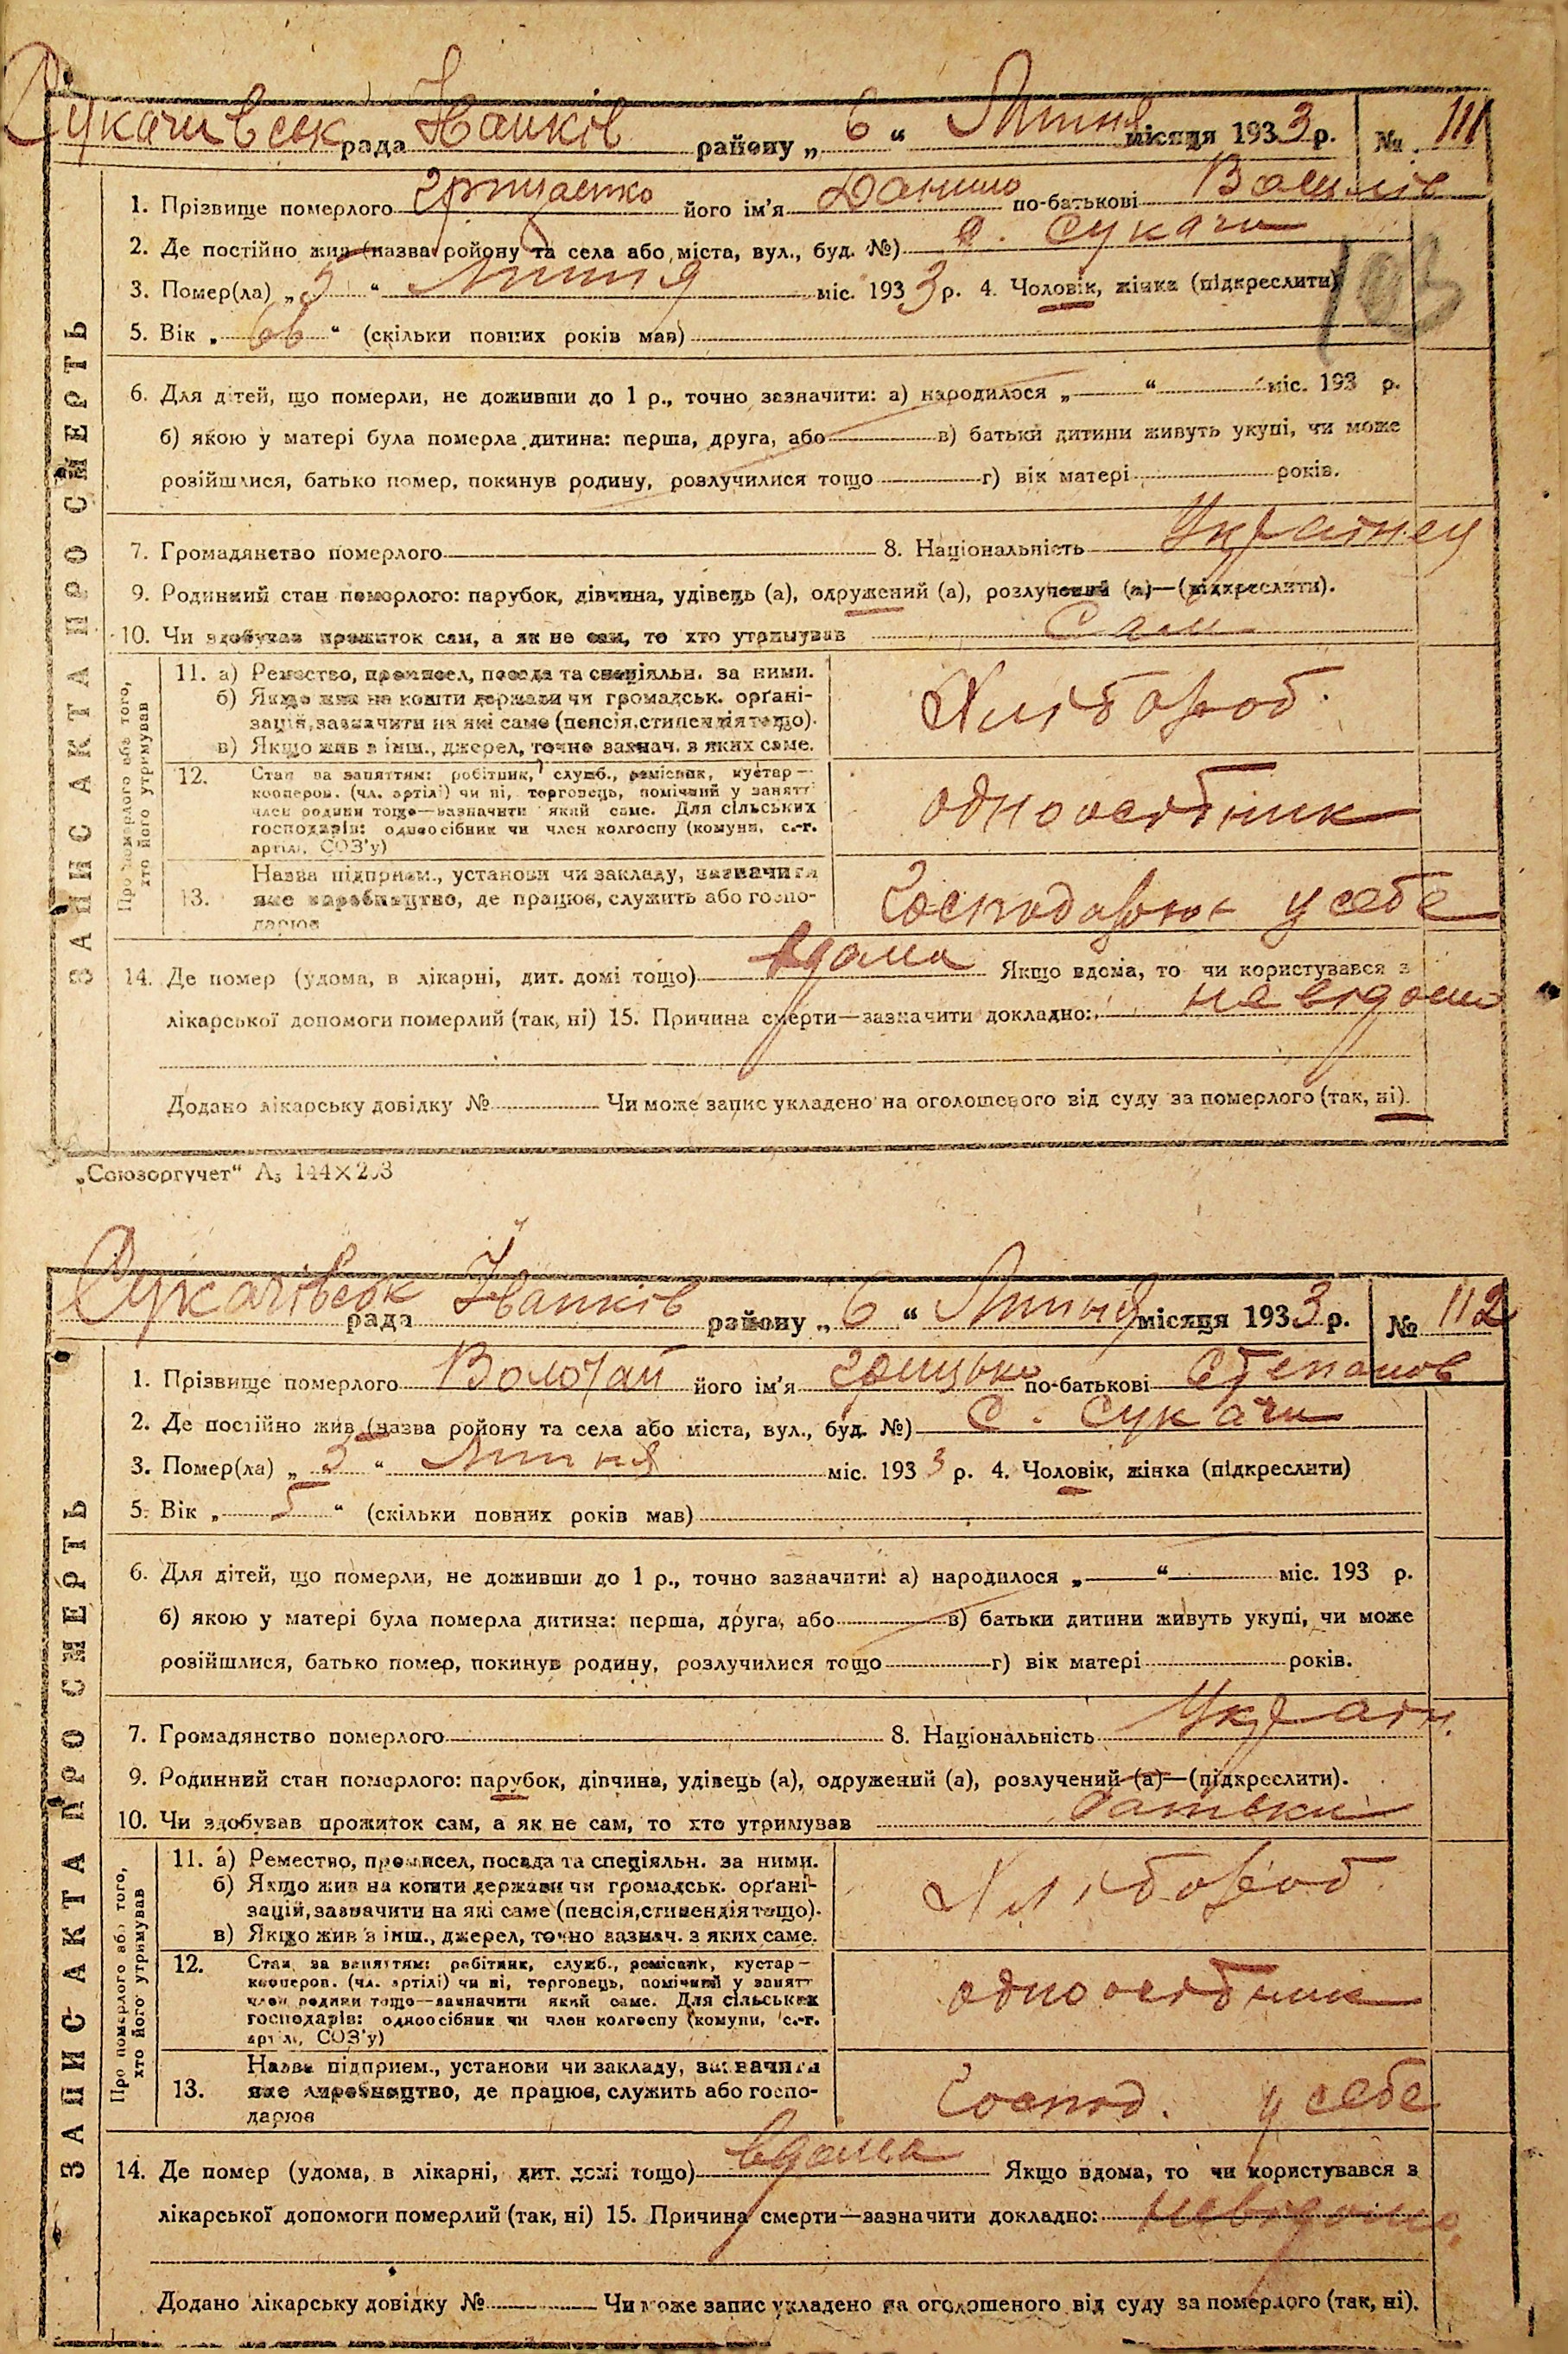 Сукачівськ рада Іванків району „ 6 “ Липня місяця 1933 р. № 111
1. Прізвище померлого Грищенко його ім'я Данило по-батькові Василів
2. Де постійно жив (назва ройону та села або міста, вул., буд. №) с. Сукачи
3. Помер(ла) „ 5 “ Липня міс. 1933 р. 4. Чоловік, жінка (підкреслити)
103
5. Вік „ 66 “ (скільки повних років мав)
6. Для дітей, що померли, не доживши до 1 р., точно зазначити: а) народилося „ “ міс. 193 р.
б) якою у матері була померла дитина: перша, друга, або в) батьки дитини живуть укупі, чи може
розійшлися, батько помер, покинув родину, розлучилися тощо г) вік матері років.
7. Громадянство померлого 8. Національність Українец
9. Родинний стан померлого: парубок, дівчина, удівець (а), одружений (а), розлучений (а)—(підкреслити).
10. Чи здобував прожиток сам, а як не сам, то хто утримував Сам
ЗАПИС АКТА ПРО СМЕРТЬ
Про померлого або того,
хто його утримував
11. а) Ремество, промисел, посада та спеціяльн. за ними.
б) Якщо жив на кошти держави чи громадськ. орґані-
зацій, зазначити на які саме (пенсія, стипендія тощо).
в) Якщо жив з інш., джерел, точно зазнач. з яких саме.
Хлібороб.
12. Стан за заняттям: робітник, служб., ремісник, кустар—
кооперов. (чл. артілі) чи ні, торговець, помічний у занятт
член родини тощо—зазначити який саме. Для сільських
господарів: одноосібник чи член колгоспу (комуни, с.-г.
артілі, СОЗ'у)
одноосібник
13. Назва підприєм., установи чи закладу, зазначити
яке виробництво, де працює, служить або госпо-
дарює
Господорює у себе
14. Де помер (удома, в лікарні, дит. домі тощо) вдома Якщо вдома, то чи користувався з
лікарської допомоги померлий (так, ні) 15. Причина смерти—зазначити докладно: невідомо
Додано лікарську довідку № Чи може запис укладено на оголошеного від суду за померлого (так, ні).
„Союзоргучет“ А₅ 144×203
Сукачівськ рада Іванків району „ 6 “ Липня місяця 1933 р. № 112
1. Прізвище померлого його ім'я Грицько по-батькові Степанов
2. Де постійно жив (назва ройону та села або міста, вул., буд. №) С. Сукачи
3. Помер(ла) „ 3 “ Липня міс. 1933 р. 4. Чоловік, жінка (підкреслити)
5. Вік „ 5 “ (скільки повних років мав)
6. Для дітей, що померли, не доживши до 1 р., точно зазначити: а) народилося „ “ міс. 193 р.
б) якою у матері була померла дитина: перша, друга, або в) батьки дитини живуть укупі, чи може
розійшлися, батько помер, покинув родину, розлучилися тощо г) вік матері років.
7. Громадянство померлого 8. Національність Україн.
9. Родинний стан померлого: парубок, дівчина, удівець (а), одружений (а), розлучений (а)—(підкреслити).
10. Чи здобував прожиток сам, а як не сам, то хто утримував батьки
ЗАПИС АКТА ПРО СМЕРТЬ
Про померлого або того,
хто його утримував
11. а) Ремество, промисел, посада та спеціяльн. за ними.
б) Якщо жив на кошти держави чи громадськ. орґані-
зацій, зазначити на які саме (пенсія, стипендія тощо).
в) Якщо жив з інш., джерел, точно зазнач. з яких саме.
Хлібороб.
12. Стан за заняттям: робітник, служб., ремісник, кустар—
кооперов. (чл. артілі) чи ні, торговець, помічний у занятт
член родини тощо—зазначити який саме. Для сільських
господарів: одноосібник чи член колгоспу (комуни, с.-г.
артілі, СОЗ'у)
одноосібник
13. Назва підприєм., установи чи закладу, зазначити
яке виробництво, де працює, служить або госпо-
дарює
Господ. у себе
14. Де помер (удома, в лікарні, дит. домі тощо) вдома Якщо вдома, то чи користувався з
лікарської допомоги померлий (так, ні) 15. Причина смерти—зазначити докладно: невідомо
Додано лікарську довідку № Чи може запис укладено на оголошеного від суду за померлого (так, ні).